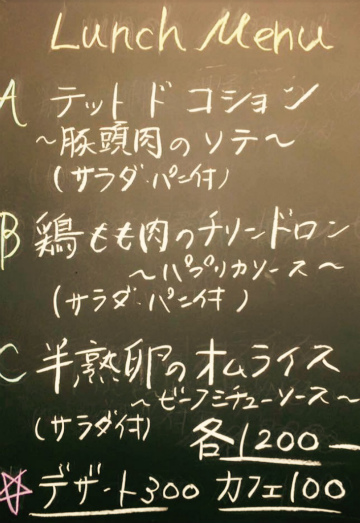 Lunch Menu
A テット ド コション
〜豚頭肉のソテ〜
(サラダ・パン付)
B 鶏もも肉のチリンドロン
〜パプリカソース〜
(サラダ・パン付)
C 半熟卵のオムライス
〜ビーフシチューソース〜
(サラダ付)
各1200—
☆デザート300 カフェ100